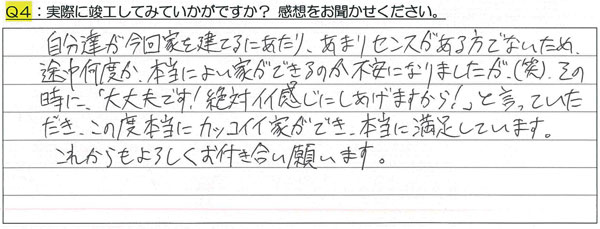 Q4：実際に竣工してみていかがですか？ 感想をお聞かせください。
自分達が今回家を建てるにあたり、あまりセンスがある方でないため、
途中何度か、本当によい家ができるのか不安になりましたが、(笑)、その
時に、「大丈夫です！絶対イイ感じにしあげますから！」と言っていた
だき、この度本当にカッコイイ家ができ、本当に満足しています。
これからもよろしくお付き合い願います。